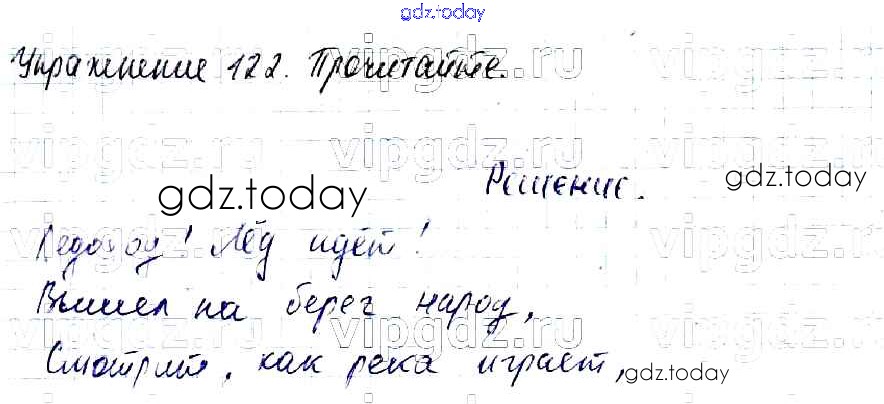 gdz.today
Упражнение 122. Прочитайте.
Решение.
gdz.today
gdz.today
Ледоход! Лёд идёт!
Вышел на берег народ,
Смотрит, как река играет,
gdz.today